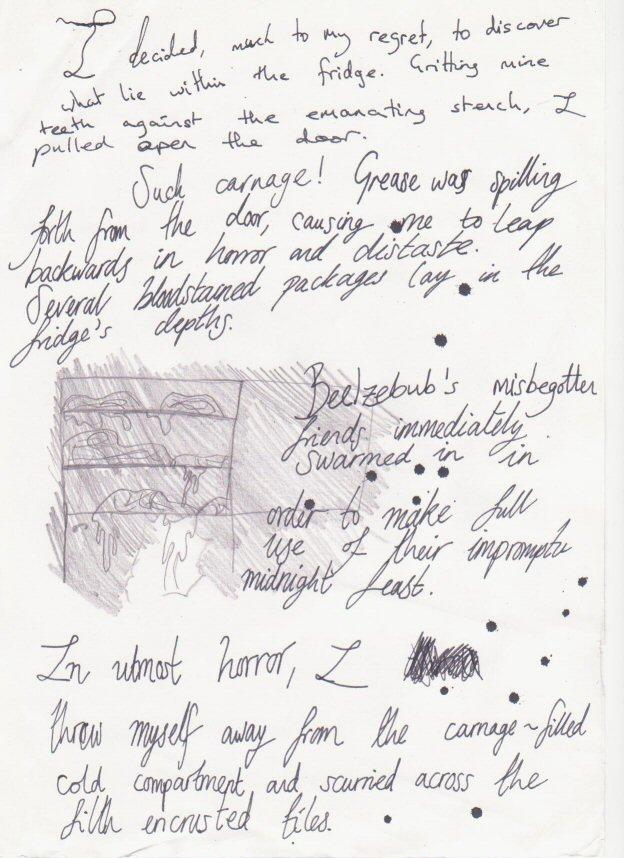 I decided, much to my regret, to discover
what lie within the fridge. Gritting mine
teeth against the emanating stench, I
pulled open the door.
Such carnage! Grease was spilling
forth from the door, causing me to leap
backwards in horror and distaste.
Several bloodstained packages lay in the
fridge's depths.
Beelzebub's misbegotten
fiends immediately
swarmed in in
order to make full
use of their impromptu
midnight feast.
In utmost horror, I
threw myself away from the carnage~filled
cold compartment and scurried across the
filth encrusted tiles.